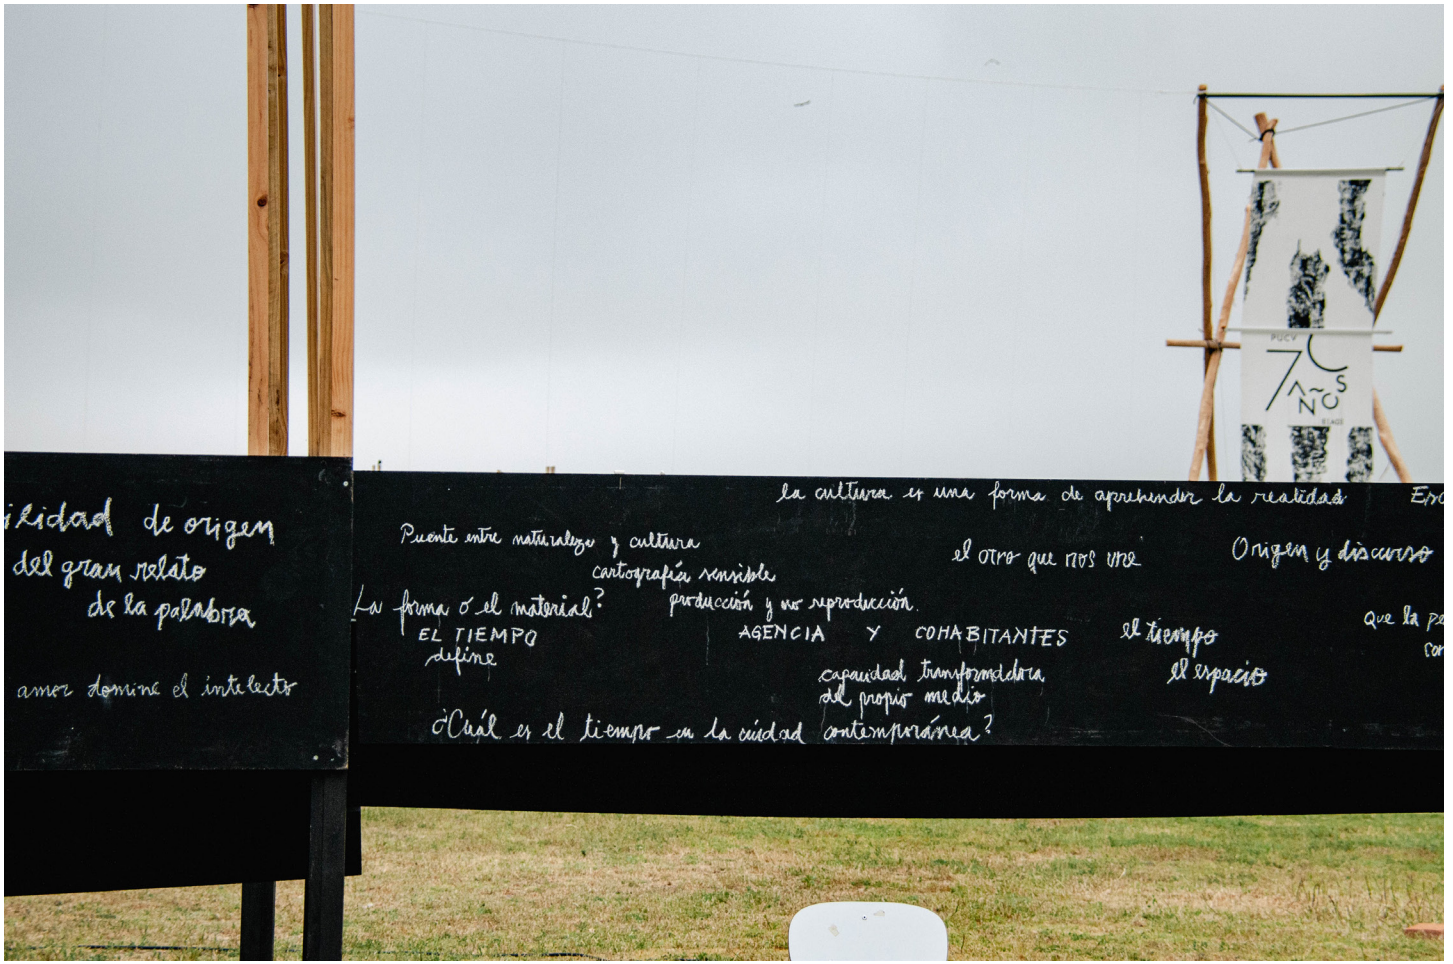 ilidad de origen
del gran relato
de la palabra
amor domine el intelecto
la cultura es una forma de aprehender la realidad
Puente entre naturaleza y cultura
cartografía sensible
el otro que nos une
Origen y discurso
La forma ó el material?
producción y no reproducción.
EL TIEMPO
define
AGENCIA Y COHABITANTES
el tiempo
el espacio
que la pe
capacidad transformadora
del propio medio
¿Cuál es el tiempo en la ciudad contemporánea?
PUCV
70
AÑOS